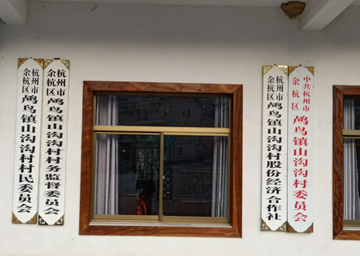 杭州市
余杭区
鸬鸟镇山沟沟村村民委员会
杭州市
余杭区
鸬鸟镇山沟沟村村务监督委员会
杭州市
余杭区
鸬鸟镇山沟沟村股份经济合作社
中共杭州市
余杭区
鸬鸟镇山沟沟村委员会